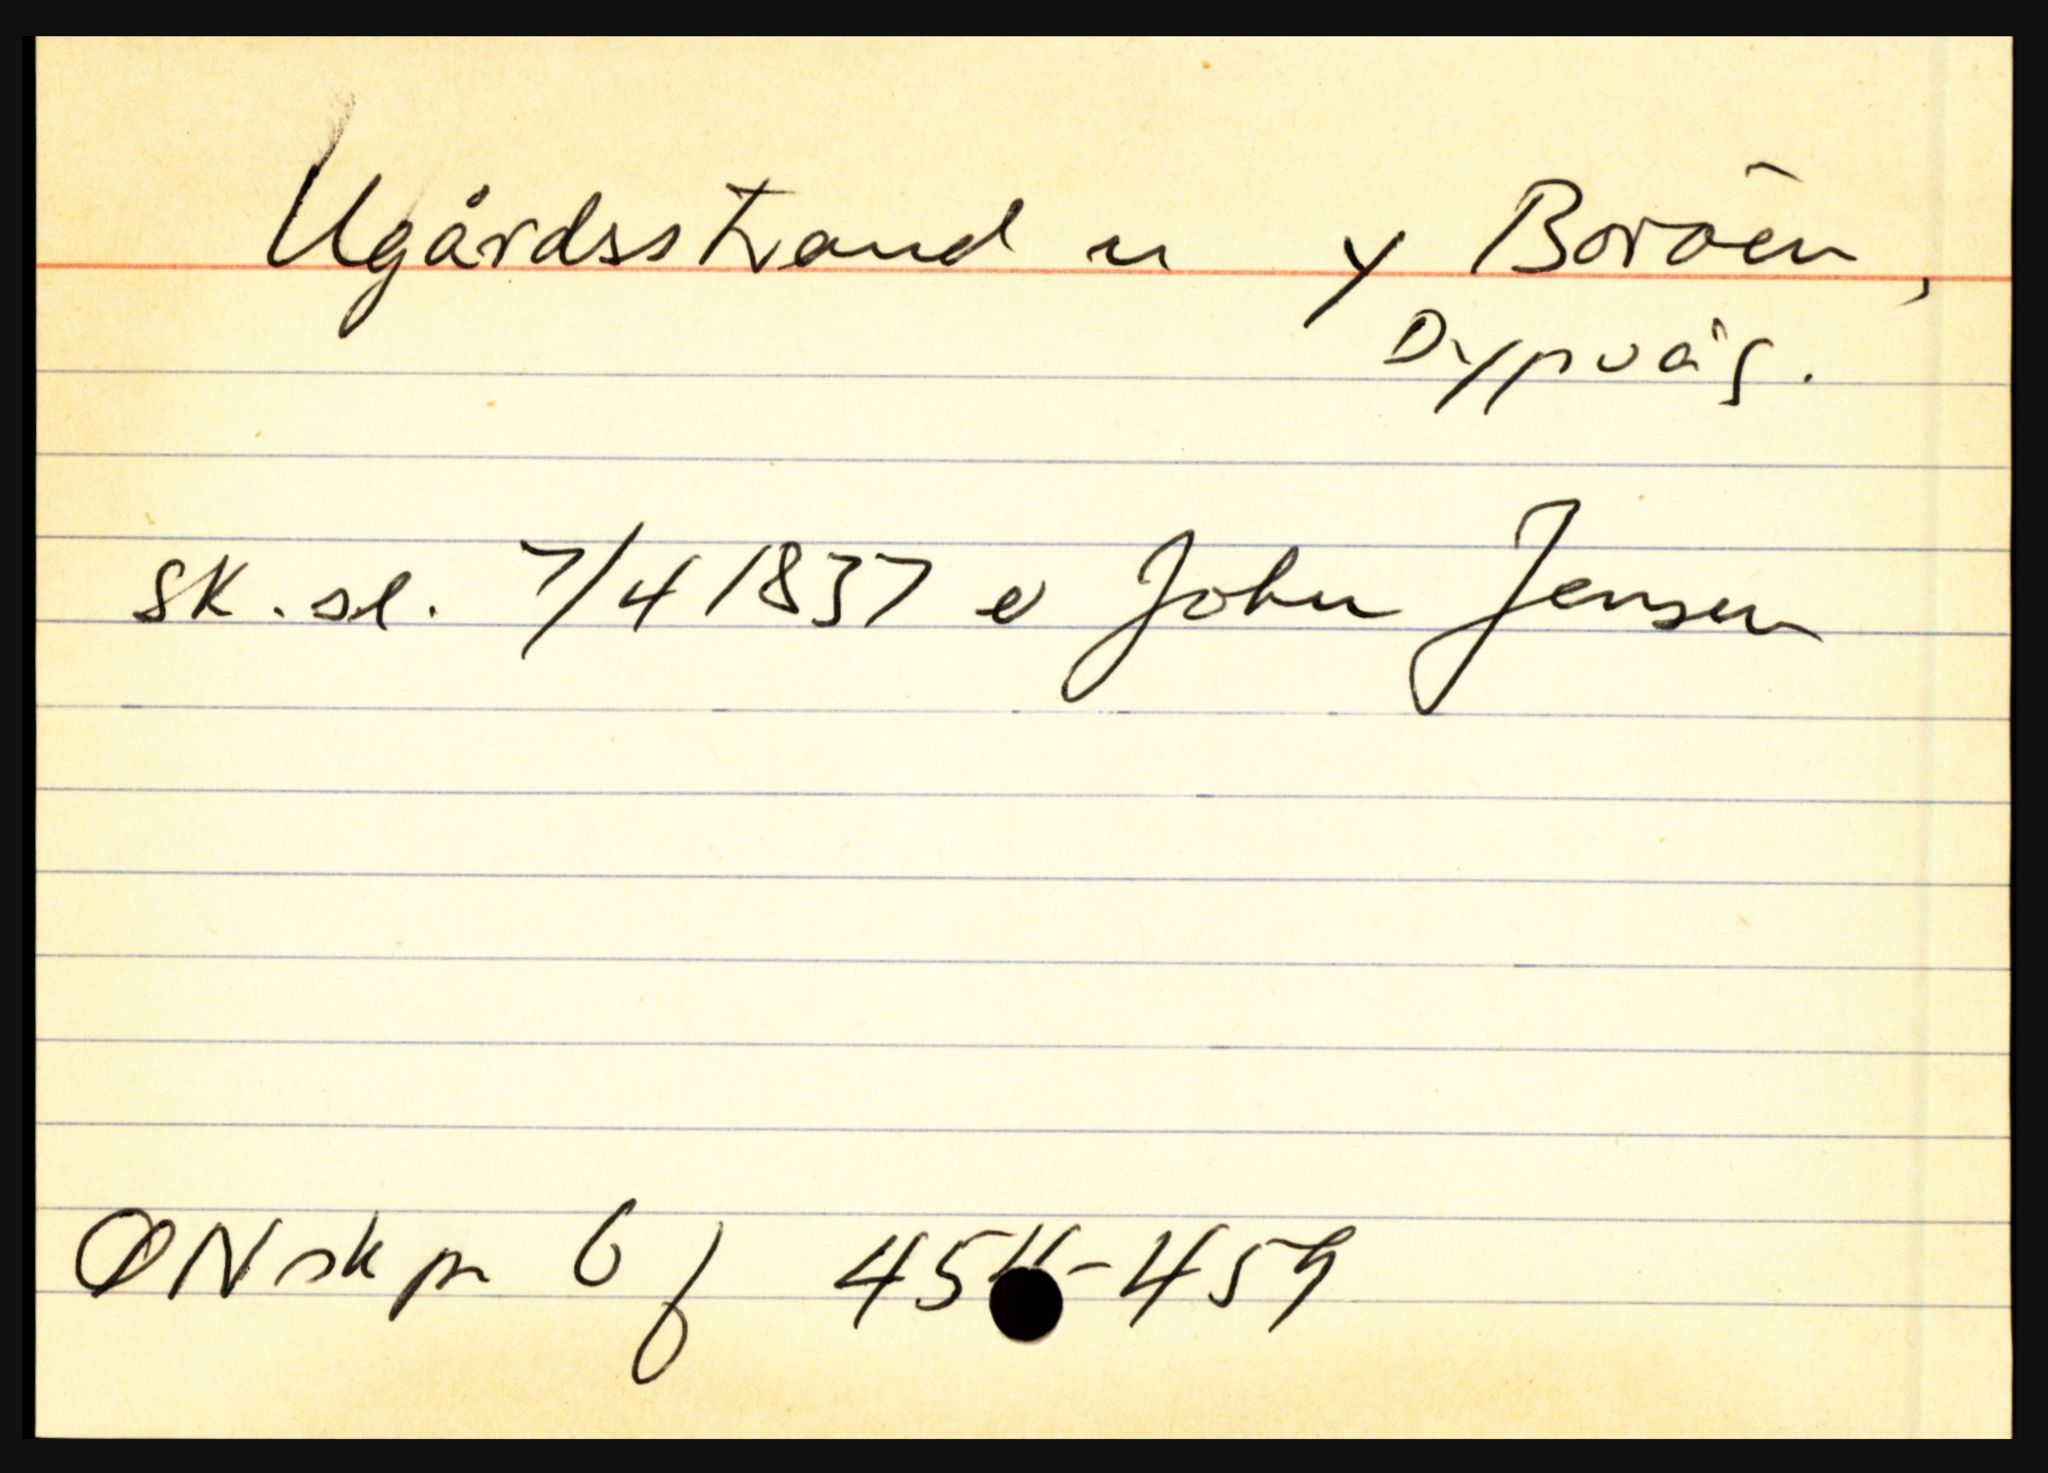 Ugårdsstrand u y Boröen,
Dypvåg.
sk. sl. 7/4 1837 e John Jensen
ØNskpr 6 f -459